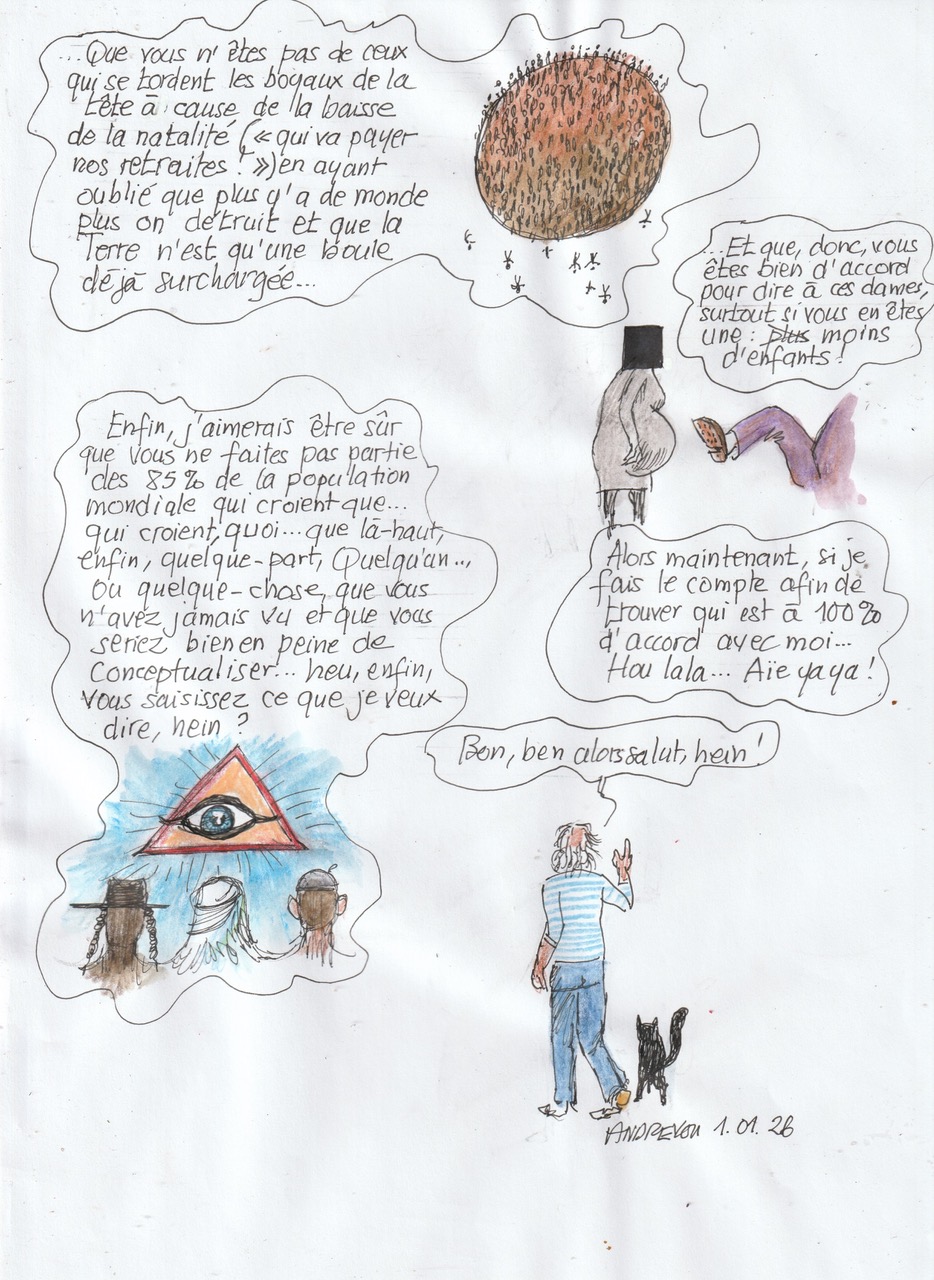 ...Que vous n'êtes pas de ceux
qui se tordent les boyaux de la
tête à cause de la baisse
de la natalité (« qui va payer
nos retraites ! ») en ayant
oublié que plus y'a de monde
plus on détruit et que la
Terre n'est qu'une boule
déjà surchargée...
...Et que, donc, vous
êtes bien d'accord
pour dire à ces dames,
surtout si vous en êtes
une : plus moins
d'enfants !
Enfin, j'aimerais être sûr
que vous ne faites pas partie
des 85% de la population
mondiale qui croient que...
qui croient, quoi... que là-haut,
enfin, quelque-part, Quelqu'un...
ou quelque-chose, que vous
n'avez jamais vu et que vous
seriez bien en peine de
conceptualiser... heu, enfin,
vous saisissez ce que je veux
dire, hein ?
Alors maintenant, si je
fais le compte afin de
trouver qui est à 100%
d'accord avec moi...
Hou lala... Aïe yaya !
Bon, ben alors salut, hein !
ANDREVON 1.01.26